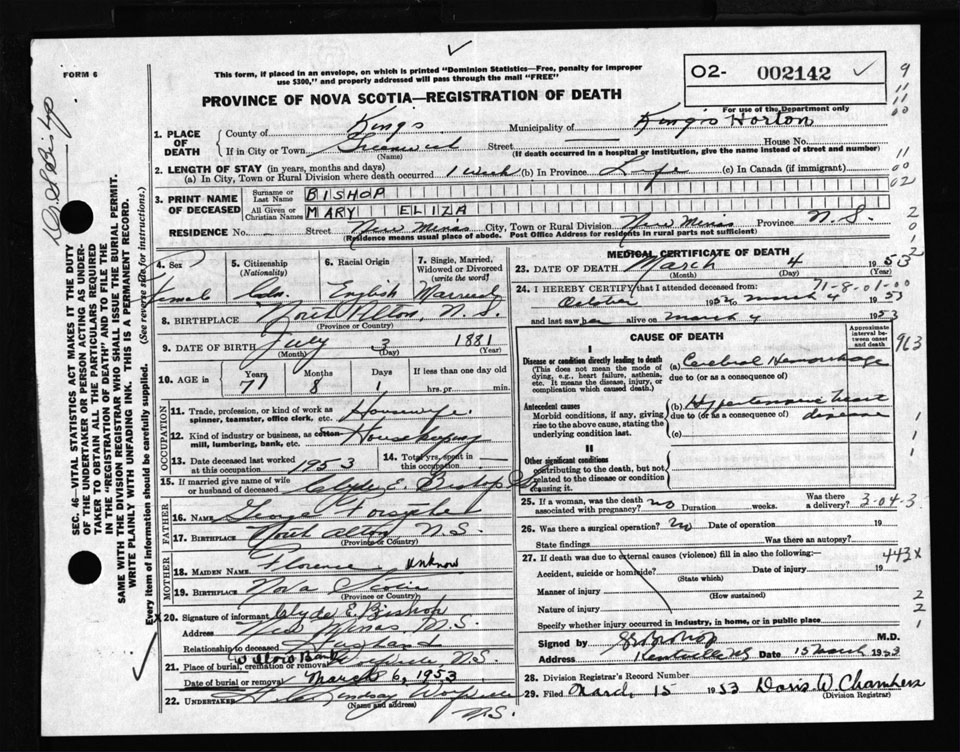 FORM 6
This form, if placed in an envelope, on which is printed "Dominion Statistics—Free, penalty for improper
use $300," and properly addressed will pass through the mail "FREE"
O2- 002142
For use of the Department only
PROVINCE OF NOVA SCOTIA—REGISTRATION OF DEATH
1. PLACE OF DEATH
County of Kings Municipality of Kings Horton
If in City or Town Greenwich Street House No.
(Name) (If death occurred in a hospital or institution, give the name instead of street and number)
2. LENGTH OF STAY (in years, months and days)
(a) In City, Town or Rural Division where death occurred 1 week (b) In Province Life (c) In Canada (if immigrant)
3. PRINT NAME OF DECEASED
Surname or Last Name BISHOP
All Given or Christian Names MARY ELIZA
RESIDENCE No. - Street New Minas City, Town or Rural Division New Minas Province N.S.
(Residence means usual place of abode. Post Office Address for residents in rural parts not sufficient)
4. Sex Female
5. Citizenship (Nationality) Cdn.
6. Racial Origin English
7. Single, Married, Widowed or Divorced (write the word) Married
8. BIRTHPLACE North Alton, N.S.
(Province or Country)
9. DATE OF BIRTH July 3 1881
(Month) (Day) (Year)
10. AGE in Years 71 Months 8 Days 1 If less than one day old hrs. or min.
OCCUPATION
11. Trade, profession, or kind of work as spinner, teamster, office clerk, etc. Housewife
12. Kind of industry or business, as cotton mill, lumbering, bank, etc. Housekeeping
13. Date deceased last worked at this occupation 1953
14. Total yrs. spent in this occupation —
15. If married give name of wife or husband of deceased Clyde E. Bishop
FATHER
16. NAME George Forsythe
17. BIRTHPLACE North Alton, N.S.
(Province or Country)
MOTHER
18. MAIDEN NAME Florence unknow
19. BIRTHPLACE Nova Scotia
(Province or Country)
X20. Signature of informant Clyde E. Bishop
Address New Minas N.S.
Relationship to deceased Husband
21. Place of burial, cremation or removal Willow Bank Wolfville, N.S.
Date of burial or removal March 6, 1953
22. UNDERTAKER Lindsay Wolfville N.S.
(Name and address)
MEDICAL CERTIFICATE OF DEATH
23. DATE OF DEATH March 4 1953
(Month) (Day) (Year)
24. I HEREBY CERTIFY that I attended deceased from: 71-8-01-00
October 1952 to March 4 1953
and last saw her alive on March 4 1953
CAUSE OF DEATH
Approximate interval between onset and death
I
Disease or condition directly leading to death
(This does not mean the mode of dying, e.g., heart failure, asthenia, etc. It means the disease, injury, or complication which caused death.)
(a) Cerebral Hemorrhage
due to (or as a consequence of)
Antecedent causes
Morbid conditions, if any, giving rise to the above cause, stating the underlying condition last.
(b) Hypertensive heart disease
due to (or as a consequence of)
(c)
II
Other significant conditions
contributing to the death, but not related to the disease or condition causing it.
25. If a woman, was the death associated with pregnancy? no Duration weeks. Was there a delivery? 3-04-3
26. Was there a surgical operation? no Date of operation 19
State findings Was there an autopsy?
27. If death was due to external causes (violence) fill in also the following:—
443X
Accident, suicide or homicide? Date of injury 19
(State which)
Manner of injury
(How sustained)
Nature of injury
Specify whether injury occurred in industry, in home, or in public place
Signed by Bishop M.D.
Address Kentville NS Date 15 March 1953
28. Division Registrar's Record Number
29. Filed March 15 1953 Doris W. Chambers
(Division Registrar)
SEC. 46—VITAL STATISTICS ACT MAKES IT THE DUTY
OF THE UNDERTAKER OR PERSON ACTING AS UNDER-
TAKER TO OBTAIN ALL THE PARTICULARS REQUIRED
IN THE "REGISTRATION OF DEATH" AND TO FILE THE
SAME WITH THE DIVISION REGISTRAR WHO SHALL ISSUE THE BURIAL PERMIT.
WRITE PLAINLY WITH UNFADING INK. THIS IS A PERMANENT RECORD.
Every item of information should be carefully supplied. (See reverse side for instructions.)
9
11
11
00
11
00
02
2
0
0
1
2
963
1
1
1
2
2
1